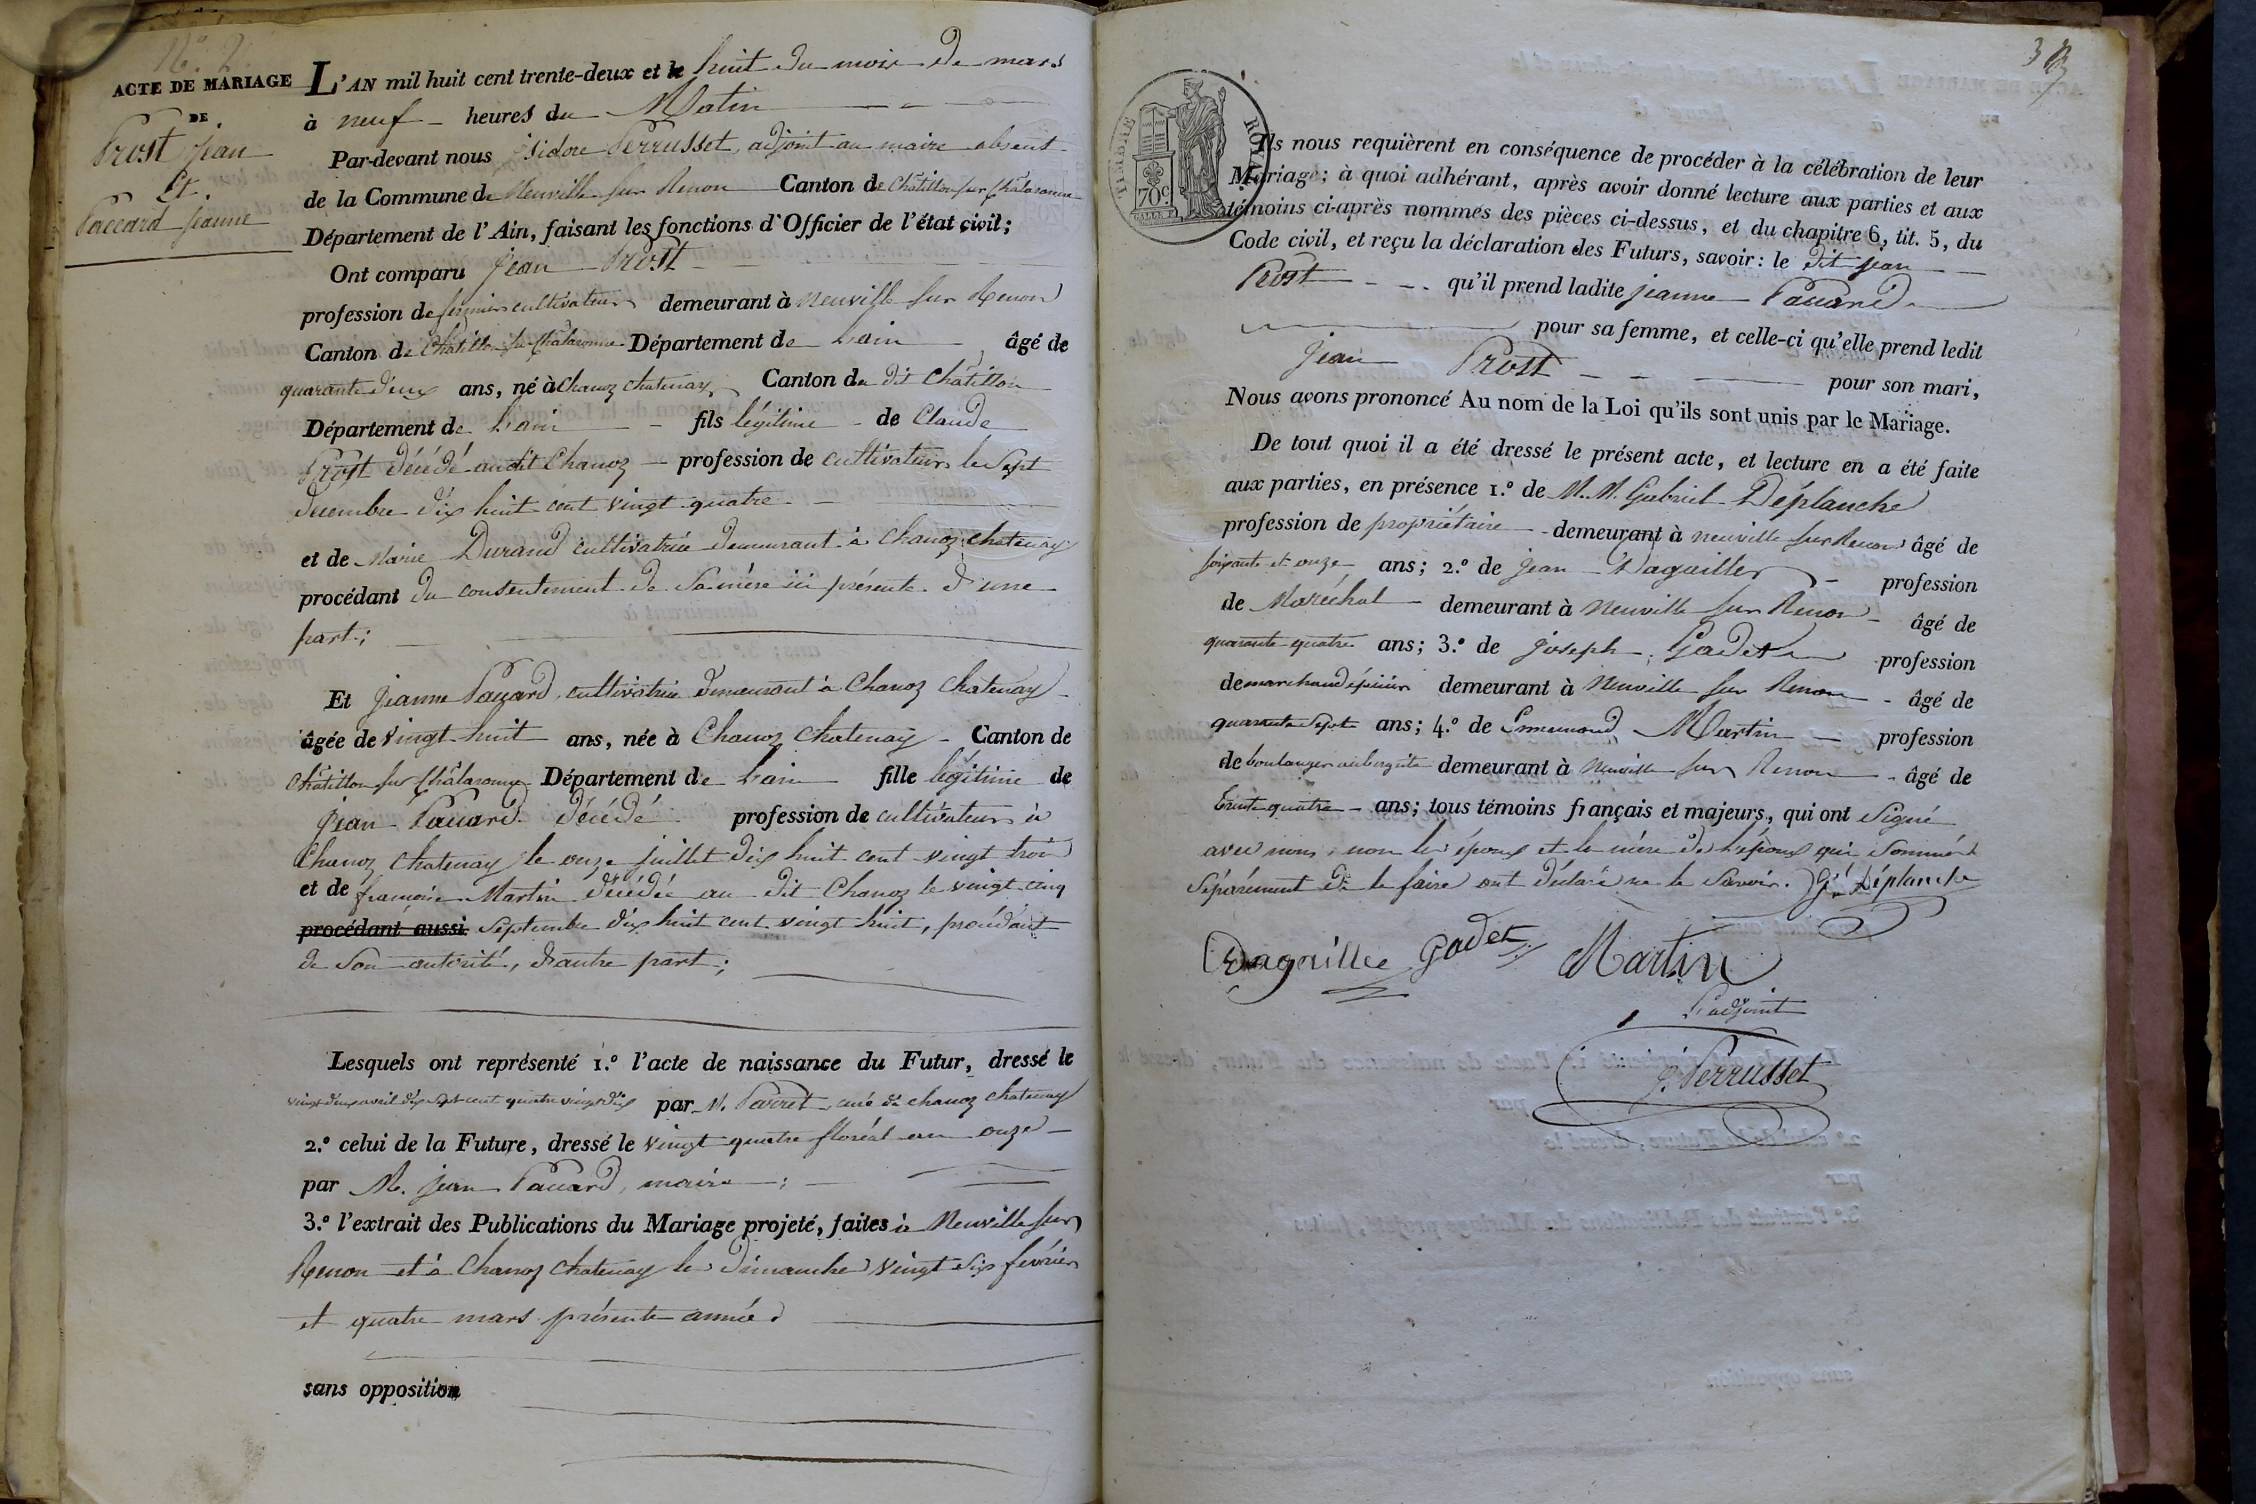 N.º 2.
ACTE DE MARIAGE
DE
Prost jean
Et
Paccard jeanne
L'AN mil huit cent trente-deux et le huit du mois de mars
à neuf heures du Matin
Par-devant nous isidore Perrusset, adjoint au maire absent
de la Commune de Neuville sur Renon Canton de Châtillon sur Chalaronne
Département de l'Ain, faisant les fonctions d'Officier de l'état civil;
Ont comparu jean Prost
profession de fermier cultivateur demeurant à neuville sur Renon
Canton de Châtillon sur Chalaronne Département de Lain âgé de
quarante deux ans, né à Chanoz chatenay, Canton de dit Châtillon
Département de Lain fils légitime de Claude
Prost décédé audit Chanoz profession de cultivateur le Sept
decembre dix huit cent vingt quatre
et de Marie Durand cultivatrice demeurant à Chanoz chatenay
procédant du consentement de Sa mère ici présente d'une
part;
Et jeanne Paccard, cultivatrice demeurant à Chanoz Chatenay
âgée de vingt huit ans, née à Chanoz Chatenay Canton de
Châtillon sur Chalaronne Département de Lain fille légitime de
jean Paccard décédé profession de cultivateur à
Chanoz Chatenay le onze juillet dix huit cent vingt trois
et de françoise Martin décédée au dit Chanoz le vingt cinq
procédant aussi Septembre dix huit cent vingt huit, procédant
de Son autorité, d'autre part;
Lesquels ont représenté 1.º l'acte de naissance du Futur, dressé le
vingt deux avril dix sept cent quatre vingt dix par M. Parret curé de chanoz chatenay
2.º celui de la Future, dressé le vingt quatre floréal an onze
par M. jean Paccard, maire;
3.º l'extrait des Publications du Mariage projeté, faites à Neuville sur
Renon et à Chanoz Chatenay le dimanche vingt six février
et quatre mars présente année
sans opposition
3
TIMBRE ROYAL
70c.
Ils nous requièrent en conséquence de procéder à la célébration de leur
Mariage; à quoi adhérant, après avoir donné lecture aux parties et aux
témoins ci-après nommés des pièces ci-dessus, et du chapitre 6, tit. 5, du
Code civil, et reçu la déclaration des Futurs, savoir: le dit jean
Prost qu'il prend ladite jeanne Paccard
pour sa femme, et celle-ci qu'elle prend ledit
jean Prost pour son mari,
Nous avons prononcé Au nom de la Loi qu'ils sont unis par le Mariage.
De tout quoi il a été dressé le présent acte, et lecture en a été faite
aux parties, en présence 1.º de M.M. Gabriel Déplanche
profession de propriétaire demeurant à neuville sur Renon âgé de
soixante et onze ans; 2.º de jean Dagaillier profession
de Maréchal demeurant à neuville sur Renon âgé de
quarante quatre ans; 3.º de joseph Gadet profession
de marchand épicier demeurant à Neuville sur Renon âgé de
quarante sept ans; 4.º de Emmeraud Martin profession
de boulanger aubergiste demeurant à Neuville sur Renon âgé de
trente quatre ans; tous témoins français et majeurs, qui ont Signé
avec nous, non les époux et la mère de l'époux qui Sommés
Séparément de le faire ont déclaré ne le Savoir. Gel Déplanche
Dagaillie Gadet Martin
L'adjoint
j. Perrusset